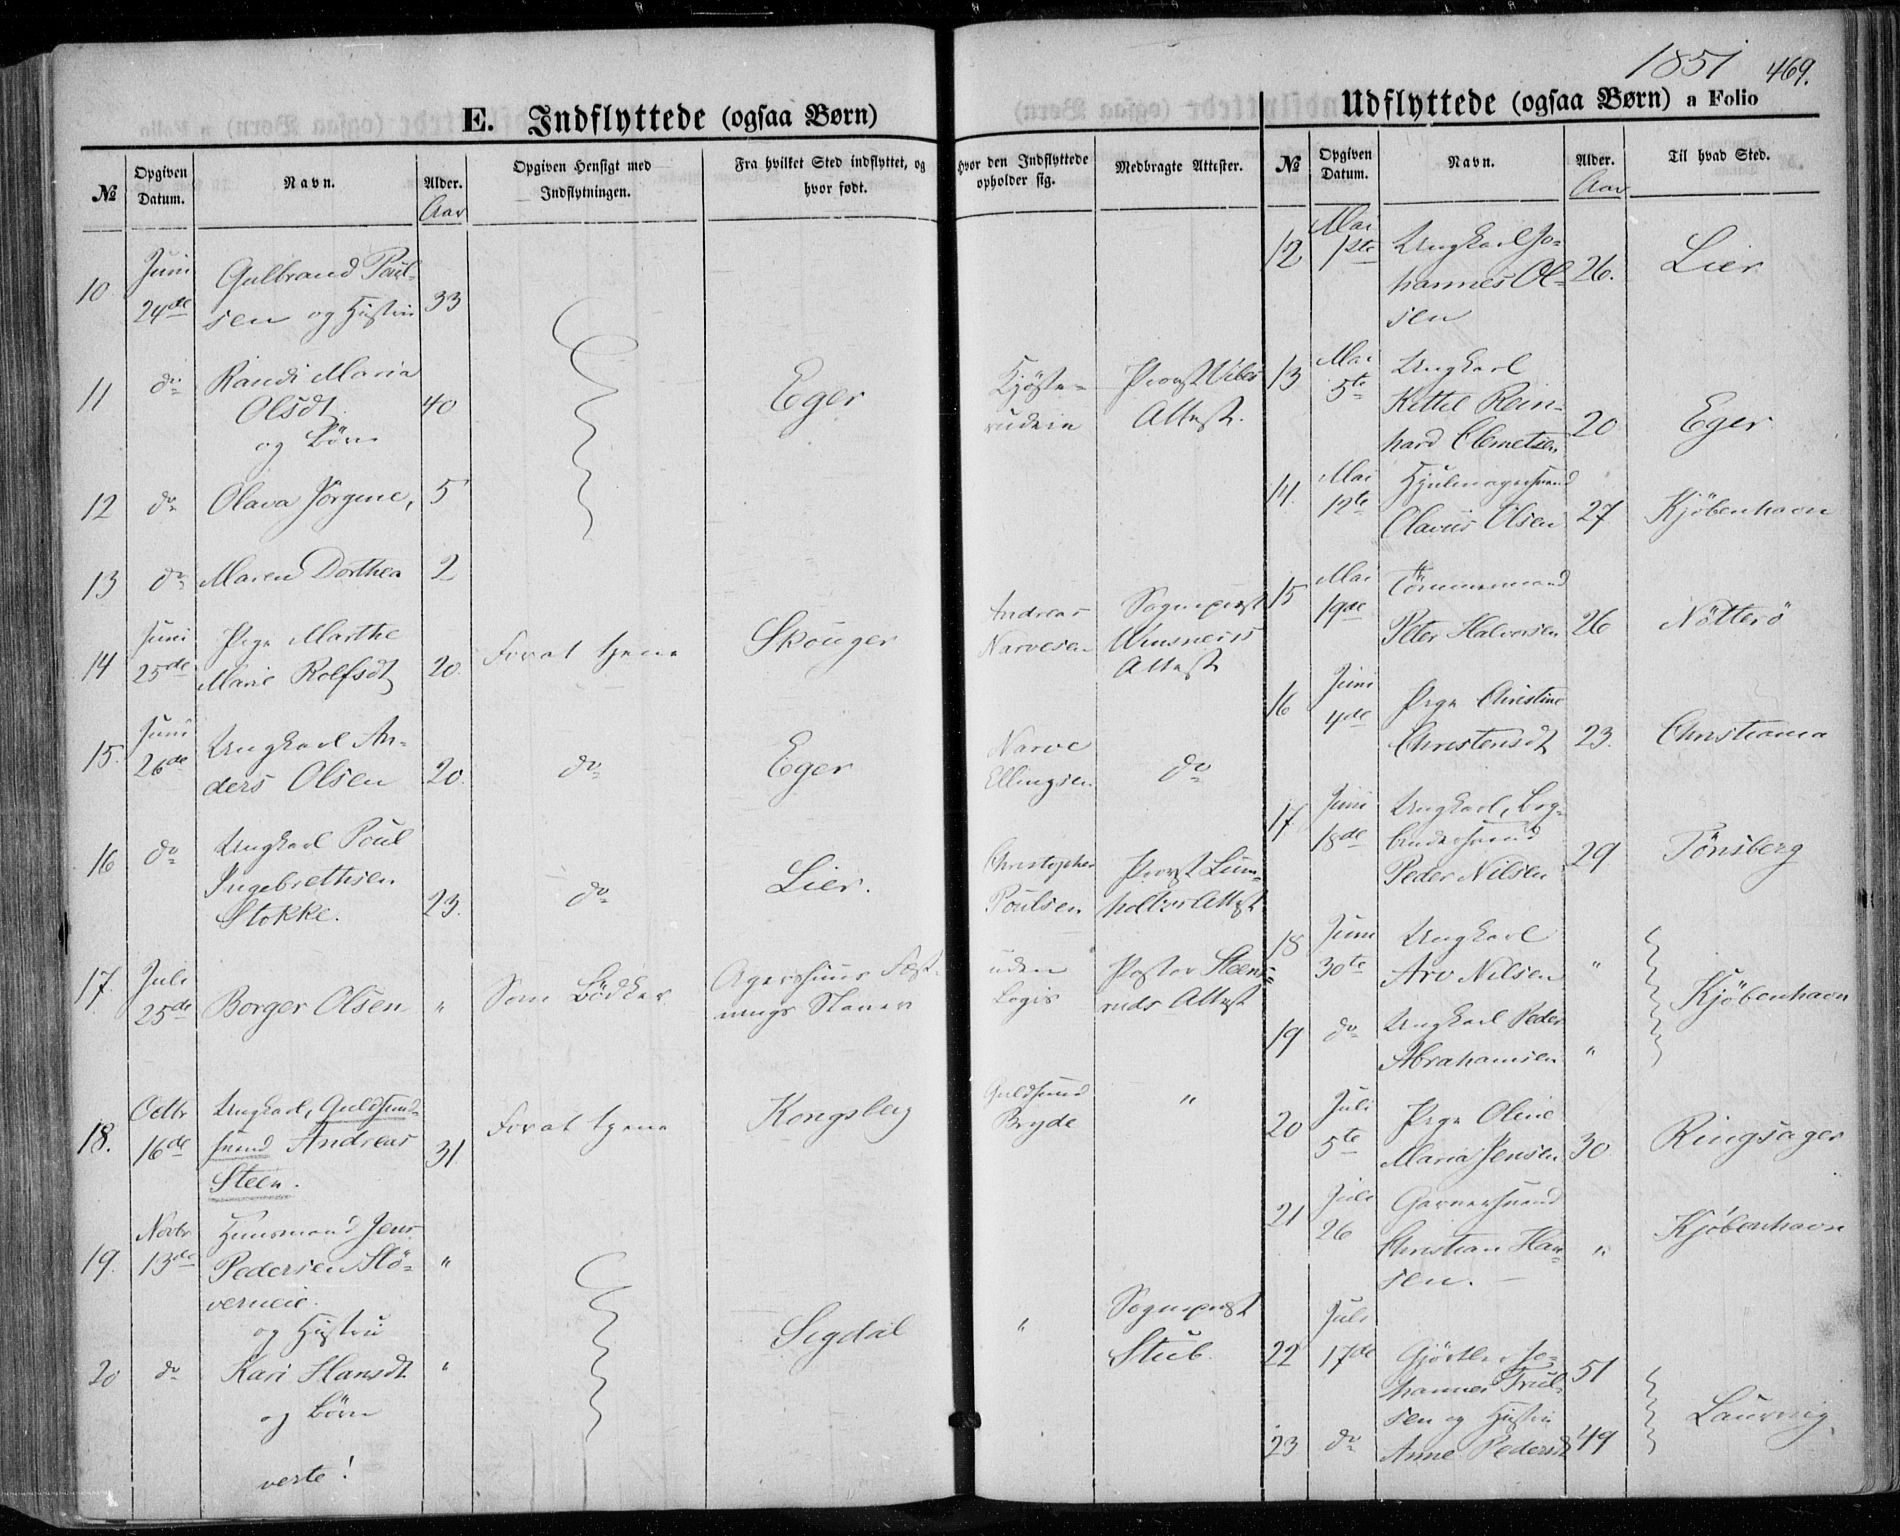 1851 469.
E. Indflyttede (ogsaa Børn)
Udflyttede (ogsaa Børn) a Folio
№ Opgiven Datum. Navn. Alder. Opgiven Hensigt med Indflytningen. Fra hvilket Sted indflyttet, og hvor født. Hvor den Indflyttede opholder sig. Medbragte Attester.
Aar
10 Juni 24de Gulbrand Paulsen og Hustru 33
11 do Randi Maria Olsdt og Børn 40 Eger Provst Vibes Attest.
12 do Olava Jørgine, 5
13 do Maren Dorthea 2
14 Juni 25de Pige Marthe Marie Rolfsdt 20 For at tjene Skouger Andreas Narvesen Sognepræst Attest
15. Juni 26de Ungkarl Anders Olsen 20. do Eger Narve Ellingsen do
16 do Ungkarl Poul Ingebrethsen Stokke. 23. do Lier. Christopher Poulsen Provst Lumholtzes Attest
17. Juli 25de Borger Olsen " Som Bødker Agershuus Fæstnings Slaveri uden Logis Pastor Steensruds Attest
18. Octbr 16de Ungkarl, Guldsmedsvend Andreas Steen. 31. For at tjene Kongsberg Guldsmed Bryde "
19. Novbr 13de Huusmand Jens Pedersen Støverneie. og Hustru "
20 do Kari Hansdt og Børn " Sigdal " Sognepræst Stub.
verte!
№ Opgiven Datum. Navn. Alder. Til hvad Sted.
Aar
12 Mai 1ste Ungkarl Johannes Olsen 26. Lier
13 Mai 5te Ungkarl Kittil Reinhard Clemetsen 20 Eger
14. Mai 12te Hjulmagersvend Olavus Olsen 27 Kjöbenhavn
15 Mai 19de Tømmermand Peter Halvorsen 26 Nötterö
16 Juni 4de Pige Christine Christensdt 23. Christiania
17 Juni 18de Ungkarl, Bogbindersvend Peder Nilsen 29 Tönsberg
18 Juni 30te Ungkarl Arv Nilsen "
19 do Ungkarl Peder Abrahamsen " Kjöbenhavn
20 Juli 5te Pige Oline Maria Jensen 30 Ringsager
21 Juli 26 Garversvend Christian Hansen. " Kjöbenhavn
22 Juli 17de Gjørtler Johannes Trulsen og Hustru 51
23 do Anne Pedersdt 49 Laurvig.